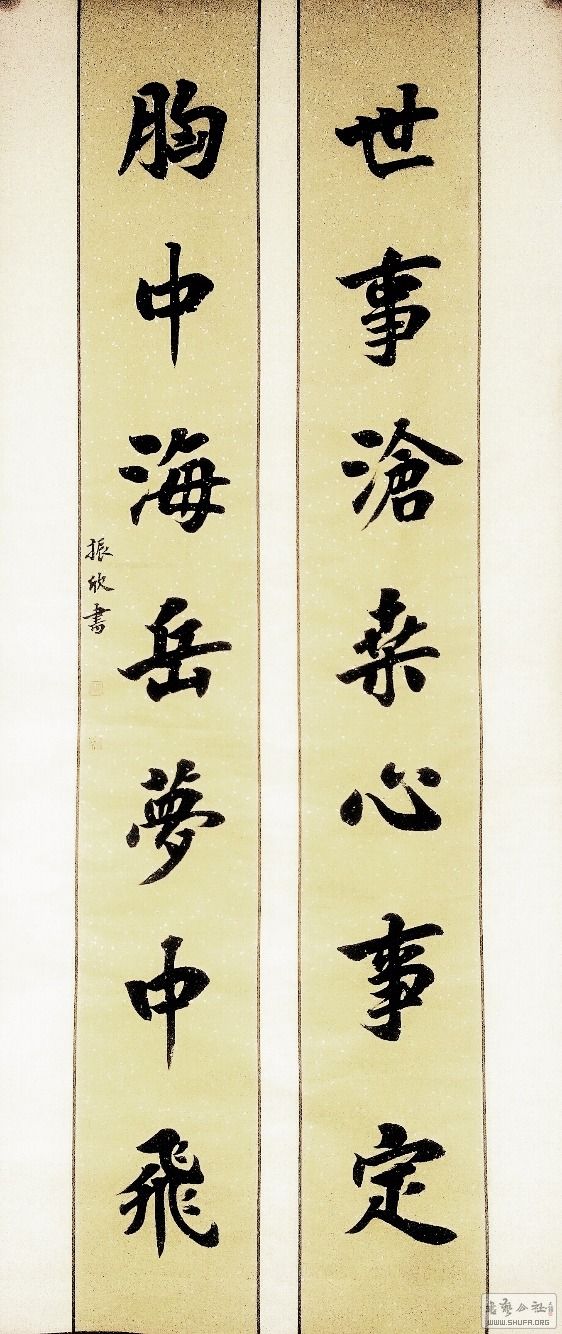 世事滄桑心事定
胸中海岳夢中飛
振欣書
书艺公社
WWW.SHUFA.ORG